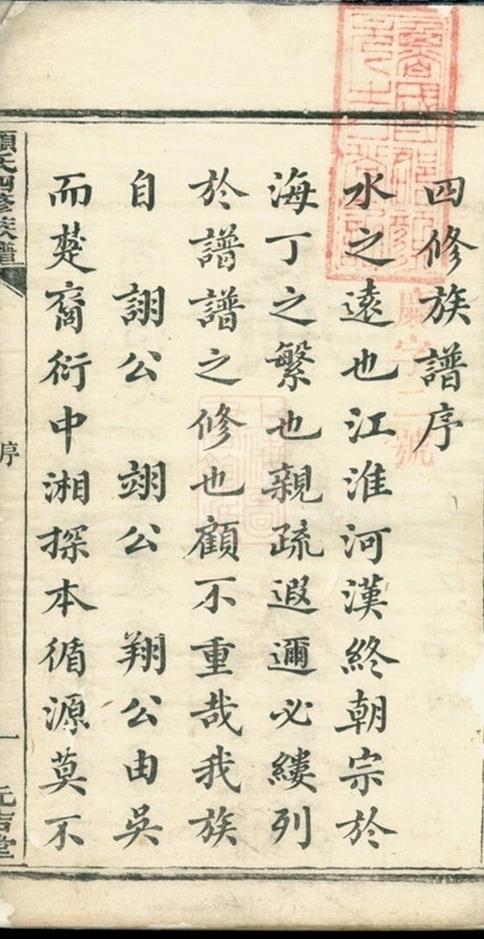 四修族譜序
水之遠也江淮河漢終朝宗於
海丁之繁也親疏遐邇必縷列
於譜譜之修也顧不重哉我族
自 詡公 翊公 翔公由吳
而楚裔衍中湘探本循源莫不
氏四修族譜
序
一
元吉堂
慶字二號